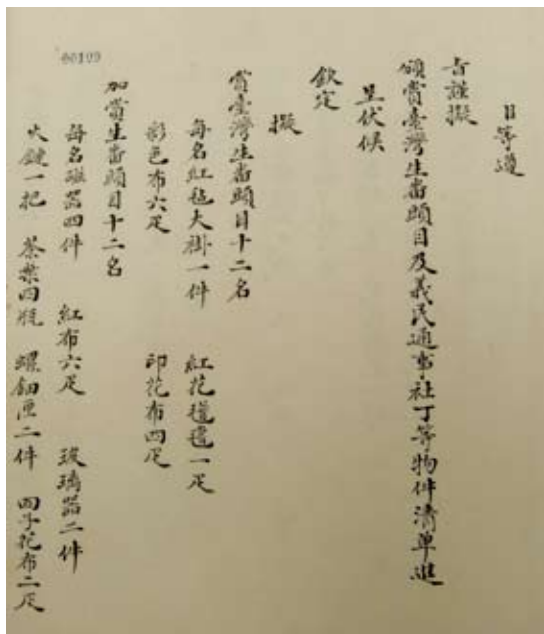 00199
臣等遵
旨謹擬
頒賞臺灣生番頭目及義民通事社丁等物件清單進
呈伏候
欽定
擬
賞臺灣生番頭目十二名
每名紅毡大掛一件 紅花氆氌一疋
彩色布六疋 印花布四疋
加賞生番頭目十二名
每名磁器四件 紅布六疋 玻璃器二件
火鏈一把 茶葉四瓶 螺鈿匣二件 回子花布二疋